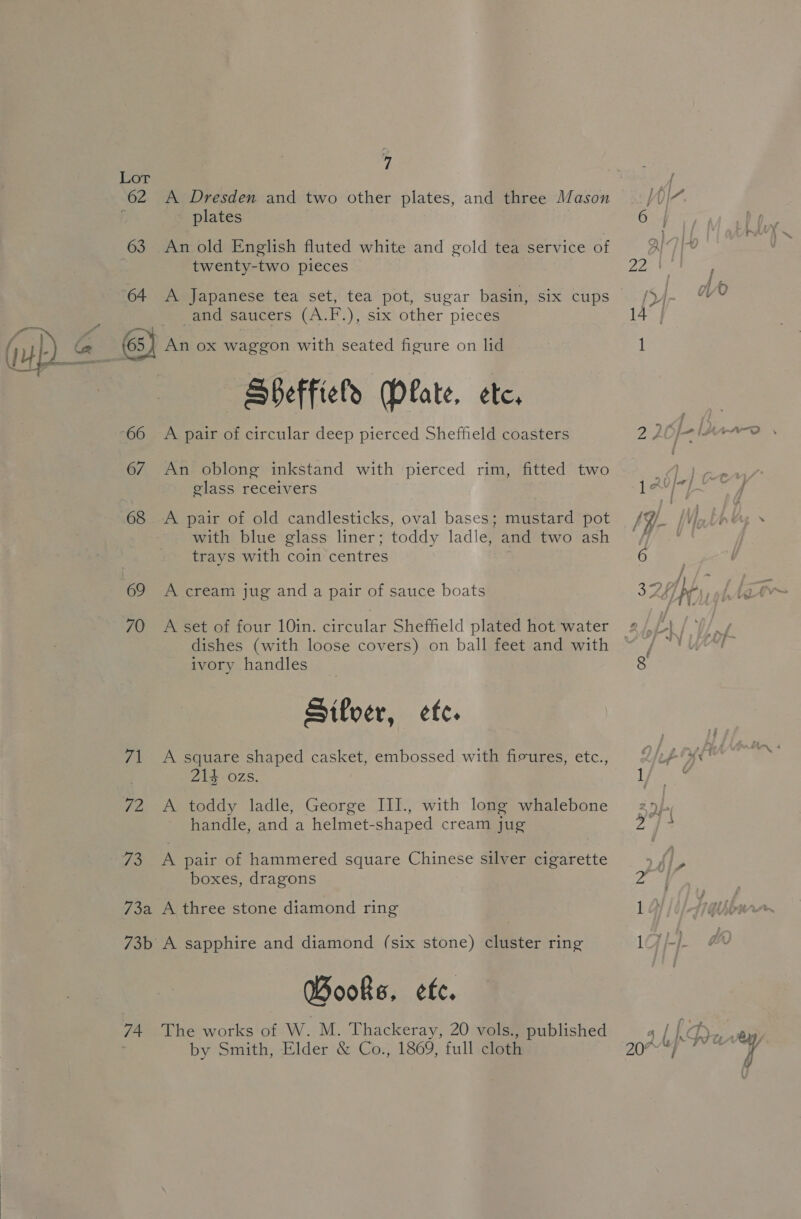 7
Lot
62 A Dresden and two other plates, and three Mason
plates 6
63 An old English fluted white and gold tea service of
twenty-two pieces 22
64 A Japanese tea set, tea pot, sugar basin, six cups
and saucers (A.F.), six other pieces 14
65 An ox waggon with seated figure on lid 1
Sheffield Plate, etc.
66 A pair of circular deep pierced Sheffield coasters 2
67 An oblong inkstand with pierced rim, fitted two
glass receivers 1
68 A pair of old candlesticks, oval bases; mustard pot
with blue glass liner; toddy ladle, and two ash
trays with coin centres 6
69 A cream jug and a pair of sauce boats 3
70 A set of four 10in. circular Sheffield plated hot water
dishes (with loose covers) on ball feet and with
ivory handles 8
Silver, etc.
71 A square shaped casket, embossed with figures, etc.,
21½ ozs. 1
72 A toddy ladle, George III., with long whalebone
handle, and a helmet-shaped cream jug 2
73 A pair of hammered square Chinese silver cigarette
boxes, dragons 2
73a A three stone diamond ring 1
73b A sapphire and diamond (six stone) cluster ring 1
Books, etc.
74 The works of W. M. Thackeray, 20 vols., published
by Smith, Elder & Co., 1869, full cloth 20